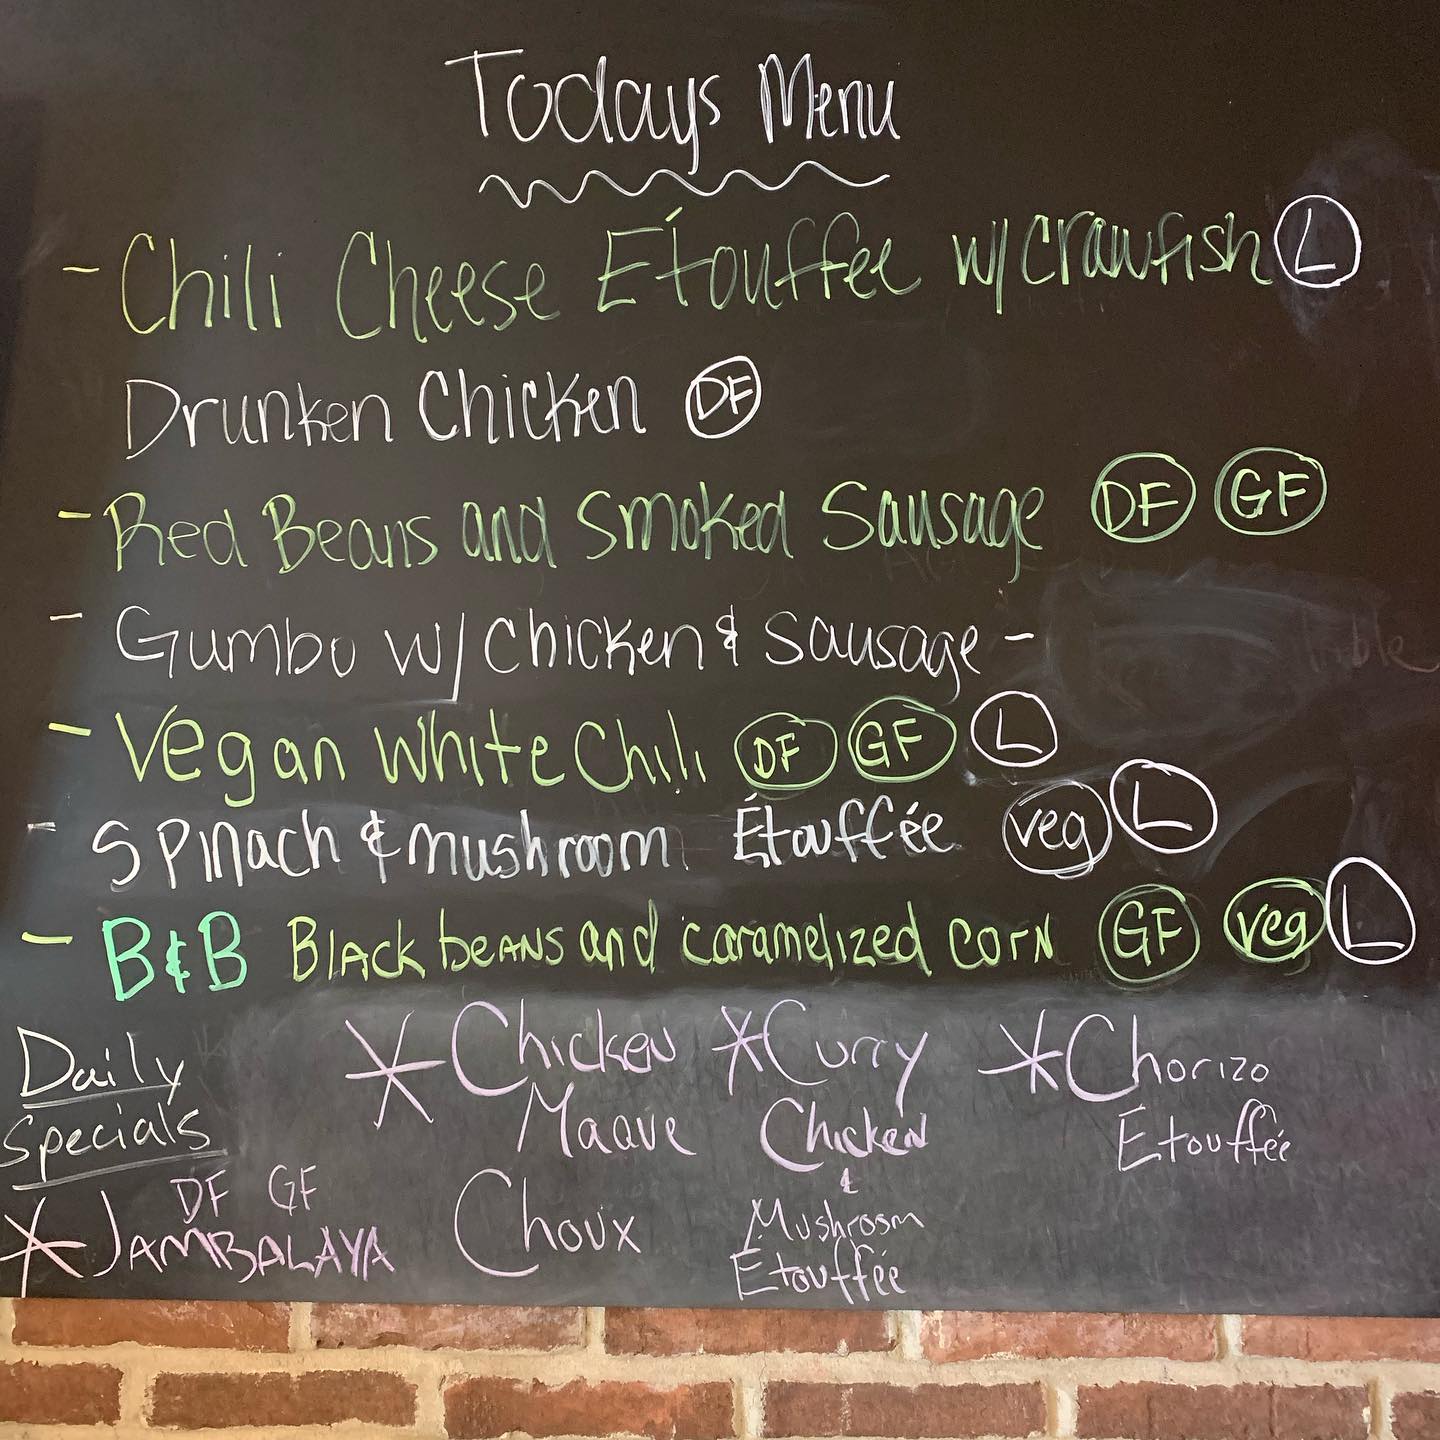 Todays Menu
- Chili Cheese Étouffee w/ crawfish L
Drunken Chicken DF
- Red Beans and Smoked Sausage DF GF
- Gumbo w/ chicken & sausage -
- Vegan White Chili DF GF L
- Spinach & mushroom Étouffée veg L
- B&B Black beans and caramelized corn GF veg L
Daily
Specials
* Chicken
Maque
Choux
* Curry
Chicken
&
Mushroom
Etouffée
* Chorizo
Etouffée
DF GF
* JAMBALAYA